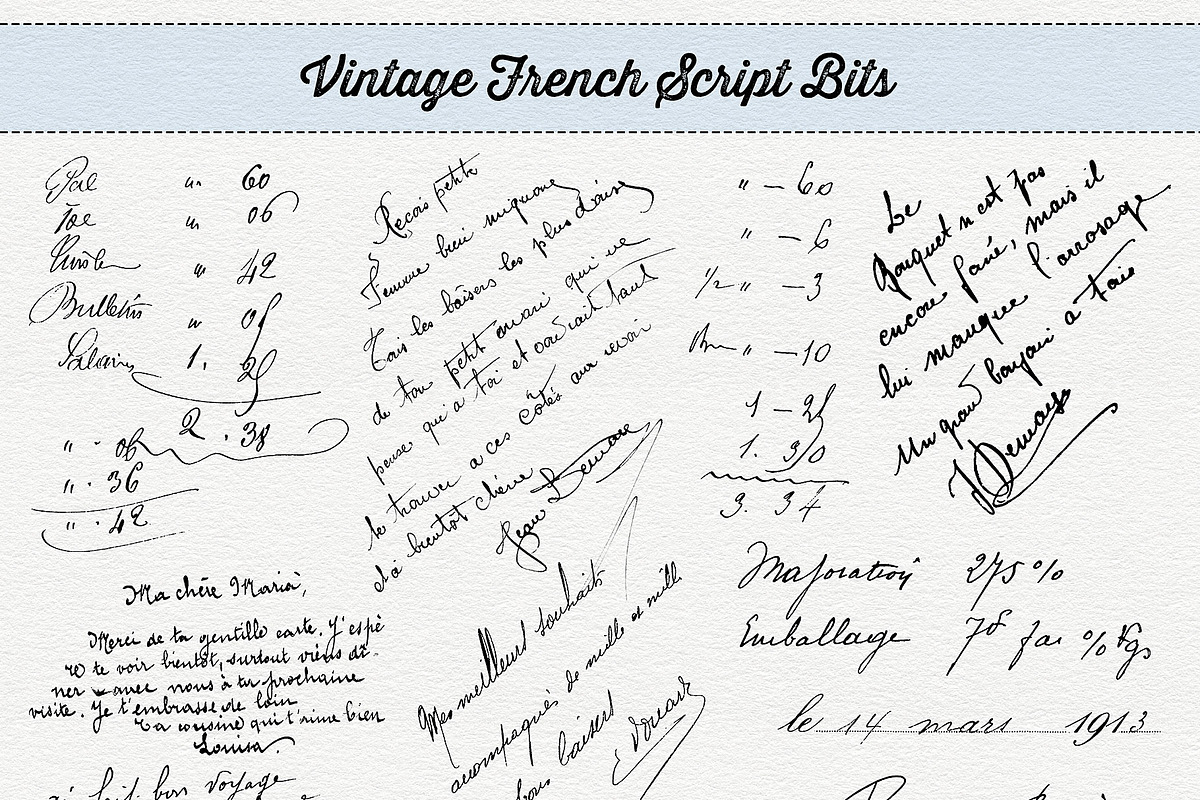 Vintage French Script Bits
" 60
" 06
" 42
Bulletin " 05
Salaires 1. 25
2. 38
" . 06
" . 36
" . 42
Reçois petite
Femme bien mignonne
Tous les baisers les plus
de ton petit mari qui ne
pense qu'a toi et voudrait tant
te trouver a ces côtés au revoir
et à bientôt chérie
Jean Demare
" — 60
" — 6
1/2 " — 3
" — 10
1 — 25
1. 30
3. 34
Le
Bouquet n'est pas
encore fané, mais il
lui manque l'arrosage
Un grand a
Ma chère Maria,
Merci de ta gentille carte. J'espè
re te voir bientôt, surtout viens dî-
ner avec nous à ta prochaine
visite. Je t'embrasse de loin
Ta cousine qui t'aime bien
Louisa.
fait bon voyage
Mes meilleurs souhaits
accompagnés de mille et mille
bons baisers
Edouard
Majoration 275 %
Emballage 7 par % Kgs
le 14 mars 1913